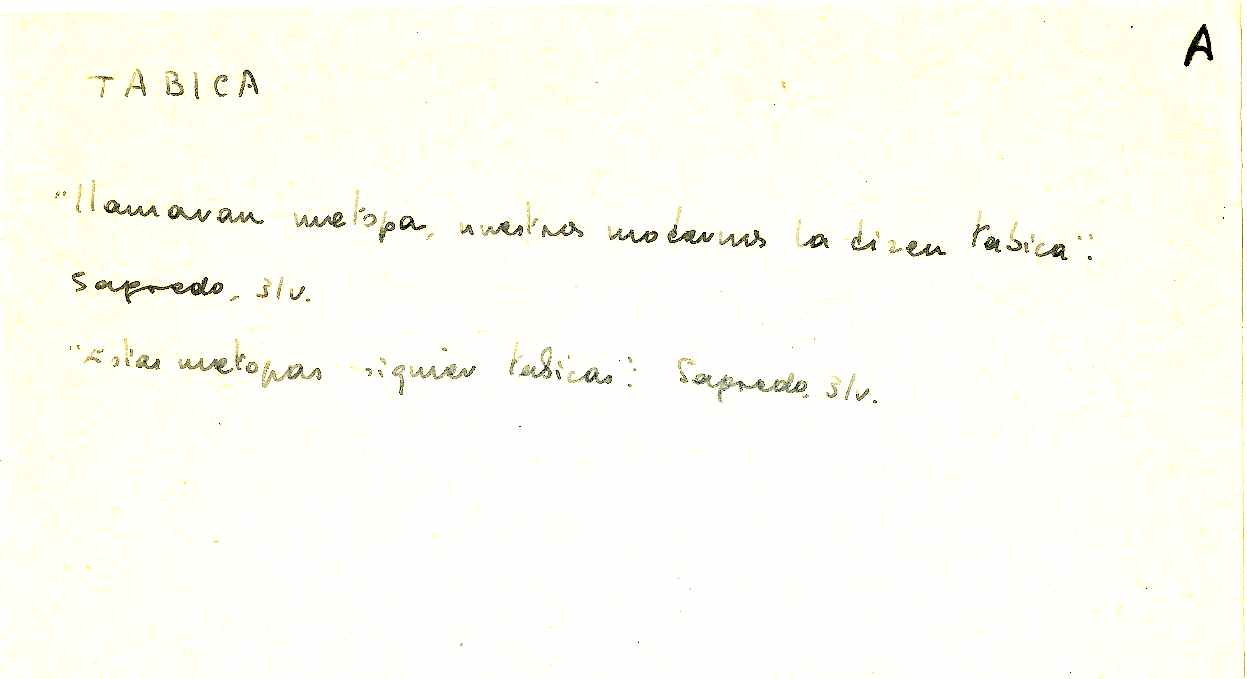 A
TABICA
"llamavan metopa, nuestros modernos la dizen tabica":
Sagredo, 31v.
"Estas metopas siquier tabicas": Sagredo, 31v.